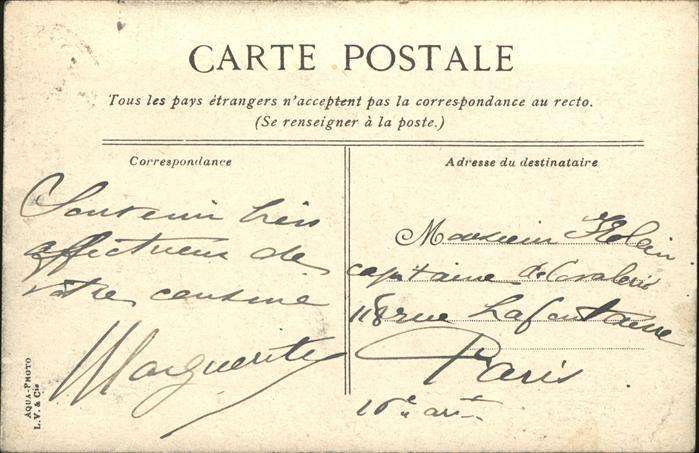 CARTE POSTALE
Tous les pays étrangers n'acceptent pas la correspondance au recto.
(Se renseigner à la poste.)
Correspondance
Souvenir bien
affectueux de
votre cousine
Marguerite
AQUA-PHOTO
L. V. & Cie
Adresse du destinataire
Monsieur
capitaine de Cavalerie
118 rue Lafontaine
Paris
16e art